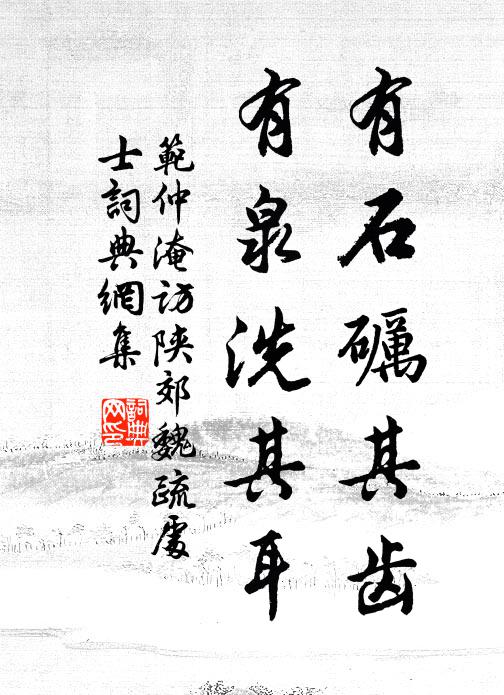 有石礪其齿
有泉洗其耳
範仲淹访陝郊魏疏處
士詞典網集
詞典网印